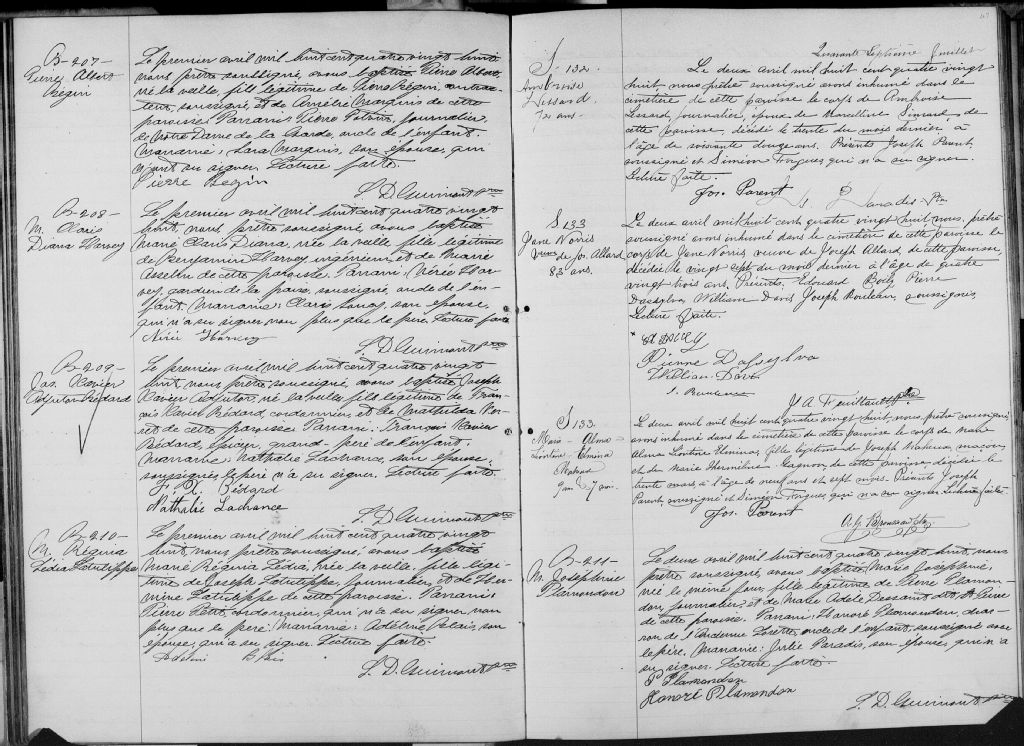 B-207-
Pierre Albert
Bégin
Le premier avril mil huit cent quatre vingt huit
nous prêtre soussigné, avons baptisé Pierre Albert,
né la veille, fils légitime de Pierre Bégin, contrac-
teur, soussigné, et de Amélie Marquis de cette
paroisse. Parrain: Pierre Poitvin, journalier,
de Notre Dame de la Garde, oncle de l'enfant.
Marraine: Sara Marquis, son épouse, qui
n'ont su signer. Lecture faite.
Pierre Begin
F. D. Guimont ptre
B-208-
M. Claris
Diana Harvey
Le premier avril mil huit cent quatre vingt
huit, nous prêtre soussigné, avons baptisé
Marie Claris Diana, née la veille, fille légitime
de Benjamin Harvey ingénieur, et de Marie
Asselin de cette paroisse. Parrain: Nérée Har-
vey, gardien de la paix, soussigné, oncle de l'en-
fant. Marraine: Claris son épouse,
qui n'a su signer non plus que le père. Lecture faite
Nérée Harvey
F. D. Guimont ptre
B-209-
Jos. Xavier
Adjutor Bédard
Le premier avril mil huit cent quatre vingt
huit, nous prêtre soussigné, avons baptisé Joseph
Xavier Adjutor, né la veille, fils légitime de Fran-
çois Xavier Bédard, cordonnier, et de Mathilda
de cette paroisse. Parrain: François Xavier
Bédard, épicier, grand-père de l'enfant.
Marraine: Nathalie Lachance, son épouse,
soussignés, le père n'a su signer. Lecture faite
F. X. Bédard
Nathalie Lachance
F. D. Guimont ptre
B-210-
M. Régina
Lédia Latulippe
Le premier avril mil huit cent quatre vingt
huit, nous prêtre soussigné, avons baptisé
Marie Régina Lédia, née la veille, fille légi-
time de Joseph Latulippe, journalier, et de Her-
mine Latulippe de cette paroisse. Parrain:
Pierre Petit, cordonnier, qui n'a su signer non
plus que le père. Marraine: Adeline Blais, son
épouse, qui a su signer. Lecture faite
Adeline Blais
F. D. Guimont ptre
Quarante Septième Feuillet
S. 132.
Ambroise
Lessard.
72 ans.
Le deux avril mil huit cent quatre vingt
huit nous prêtre soussigné avons inhumé dans le
cimetière de cette paroisse le corps de Ambroise
Lessard, journalier, époux de Marcelline Simard de
cette paroisse, décédé le trente du mois dernier à
l'âge de soixante douze ans. Présents Joseph Parent
soussigné et Siméon Turgeon qui n'a su signer.
Lecture faite.
Jos. Parent
Paradis Ptre
S 133
Jane Norris
veuve de Jos. Allard
83 ans.
Le deux avril mil huit cent quatre vingt huit nous, prêtre
soussigné avons inhumé dans le cimetière de cette paroisse le
corps de Jane Norris, veuve de Joseph Allard, de cette paroisse,
décédée le vingt sept du mois dernier à l'âge de quatre
vingt trois ans. Présents, Edouard Boily Pierre
Dassylva William Davis Joseph Rouleau, soussignés.
Lecture faite.
Ed Boily
Pierre Dassylva
William Davis
J. A. Feuiltault ptre
S 133.
Marie - Alma -
Léontine - Elmina
Maheux
9 ans - 7 m.
Le deux avril mil huit cent quatre vingt huit, nous, prêtre soussigné,
avons inhumé dans le cimetière de cette paroisse le corps de Marie
Alma Léontine Elmina, fille légitime de Joseph Mahieux, maçon,
et de Marie Herméline Gagnon, de cette paroisse, décédée le
trente mars, à l'âge de neuf ans et sept mois. Présents Joseph
Parent, soussigné et Siméon Turgeon qui n'a su signer. Lecture faite.
Jos. Parent
B-211-
M. Joséphine
Plamondon
Le deux avril mil huit cent quatre vingt huit, nous
prêtre soussigné, avons baptisé Marie Joséphine,
née le même jour, fille légitime de Pierre Plamon-
don, journalier, et de Marie Adèle Dessaint dit St Pierre
de cette paroisse. Parrain: Honoré Plamondon, char-
ron de l'Ancienne Lorette, oncle de l'enfant, soussigné avec
le père. Marraine: Julie Paradis, son épouse, qui n'a
su signer. Lecture faite.
P Plamondon
Honoré Plamondon
F. D. Guimont ptre